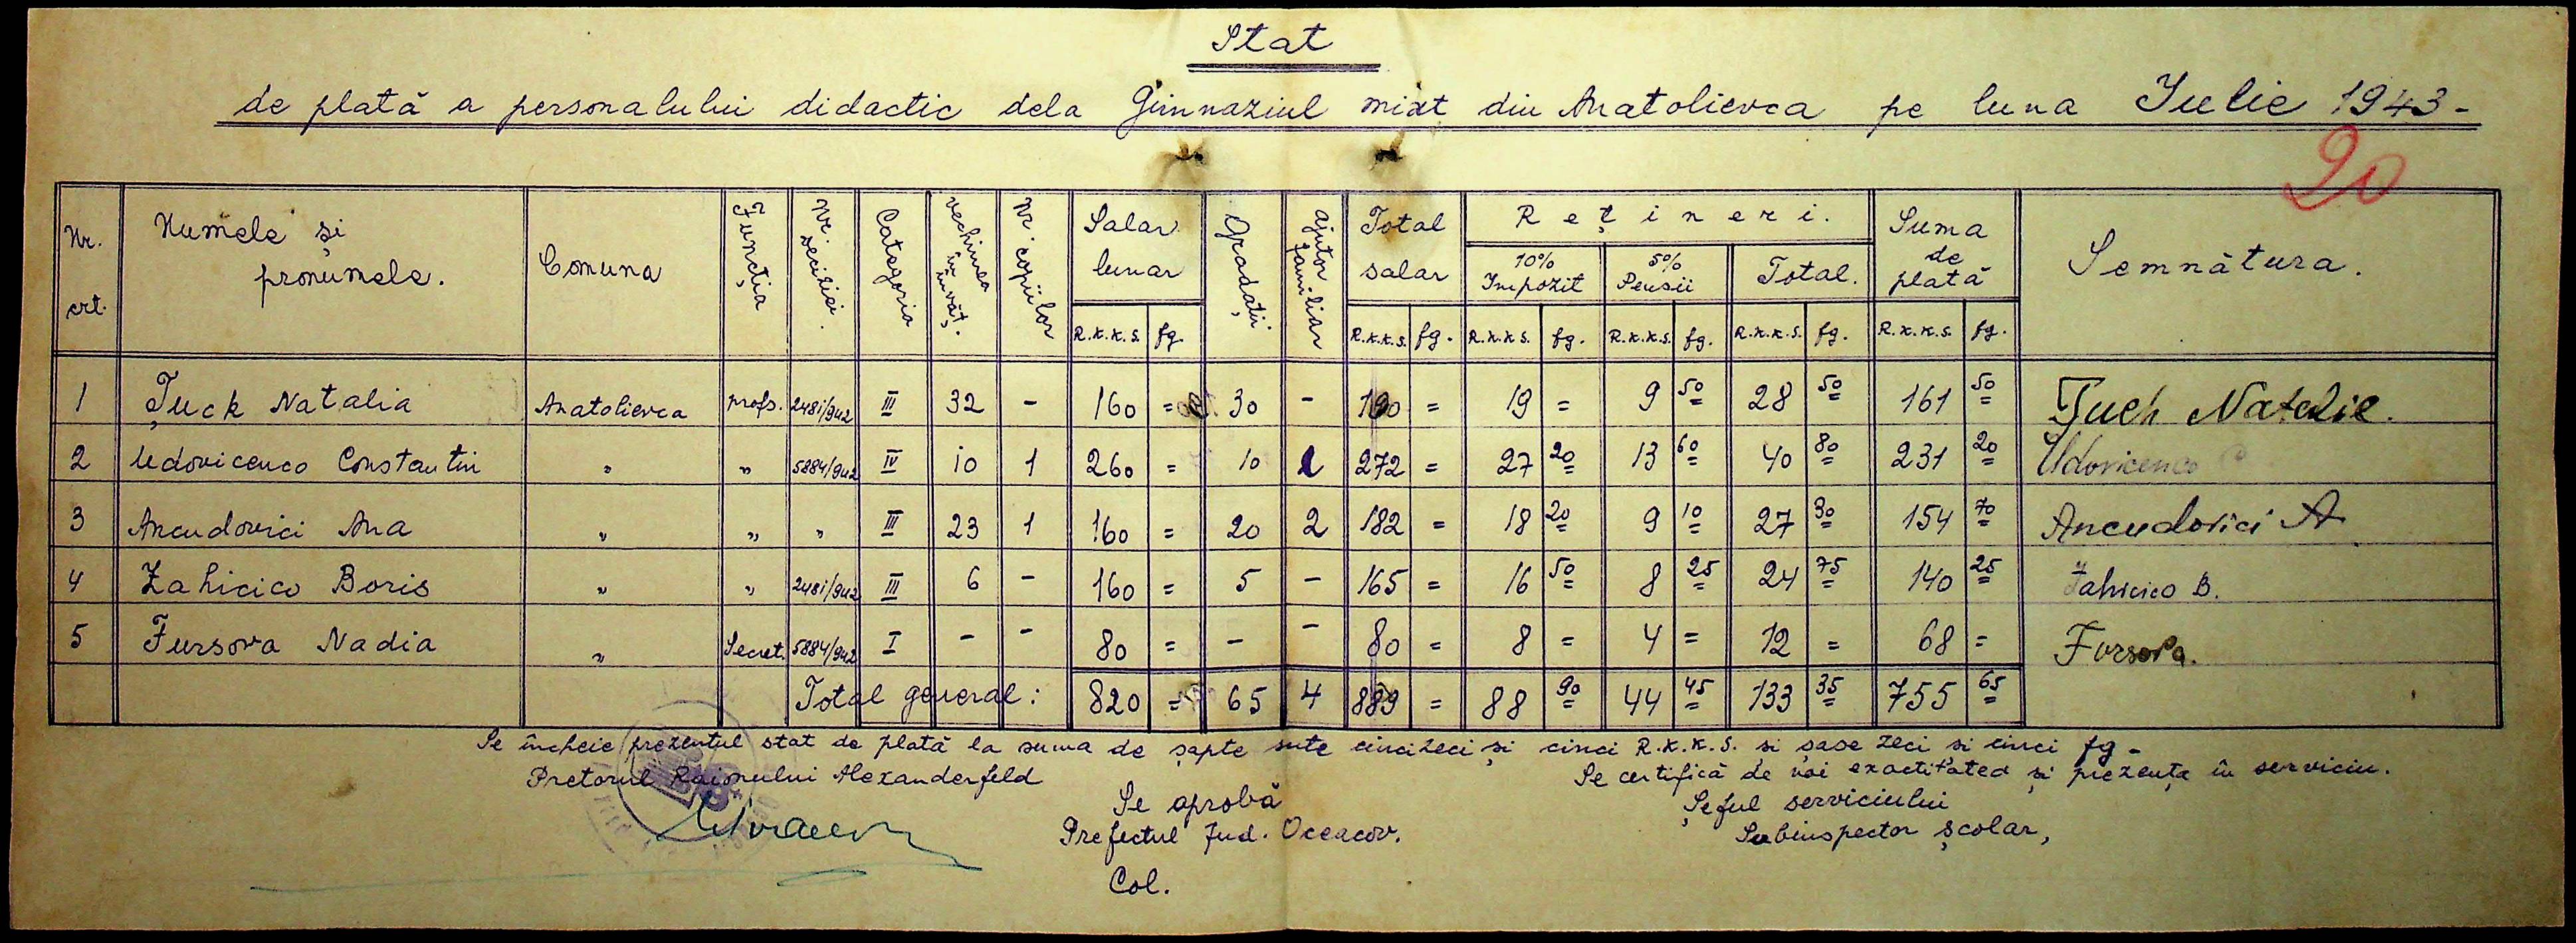 Stat
de plată a personalului didactic dela Gimnaziul mixt din Anatolievca pe luna Iulie 1943-
20
Nr. crt. Numele și pronumele. Comuna Funcția Nr. deciziei. Categoria vechimea în învăț. Nr. copiilor Salar lunar Gradații ajutor familiar Total salar Rețineri. 10% Impozit 5% Pensii Total. Suma de plată Semnătura.
R.K.K.S. fg. R.K.K.S. fg. R.K.K.S. fg. R.K.K.S. fg. R.K.K.S. fg. R.K.K.S. fg.
1 Țuck Natalia Anatolievca profs. 2481/942 III 32 - 160 = 30 - 190 = 19 = 9 50 28 50 161 50 Natalie.
2 Udovicenco Constantin " " 5884/942 IV 10 1 260 = 10 2 272 = 27 20 13 60 40 80 231 20 Udovicenco
3 Ancudovici Ana " " " III 23 1 160 = 20 2 182 = 18 20 9 10 27 30 154 70 Ancudovici A
4 Zahicico Boris " " 2481/942 III 6 - 160 = 5 - 165 = 16 50 8 25 24 75 140 25 Zahicico B.
5 Fursova Nadia " Secret. 5884/942 I - - 80 = - - 80 = 8 = 4 = 12 = 68 = Fursova.
Total general: 820 = 65 4 889 = 88 90 44 45 133 35 755 65
Se încheie prezentul stat de plată la suma de șapte sute cincizeci și cinci R.K.K.S. si șase zeci si cinci fg-
Pretorul Raionului Alexanderfeld
Se certifică de noi exactitatea și prezența în serviciu.
Se aprobă
Prefectul Jud. Oceacov.
Col.
Șeful serviciului
Subinspector școlar,